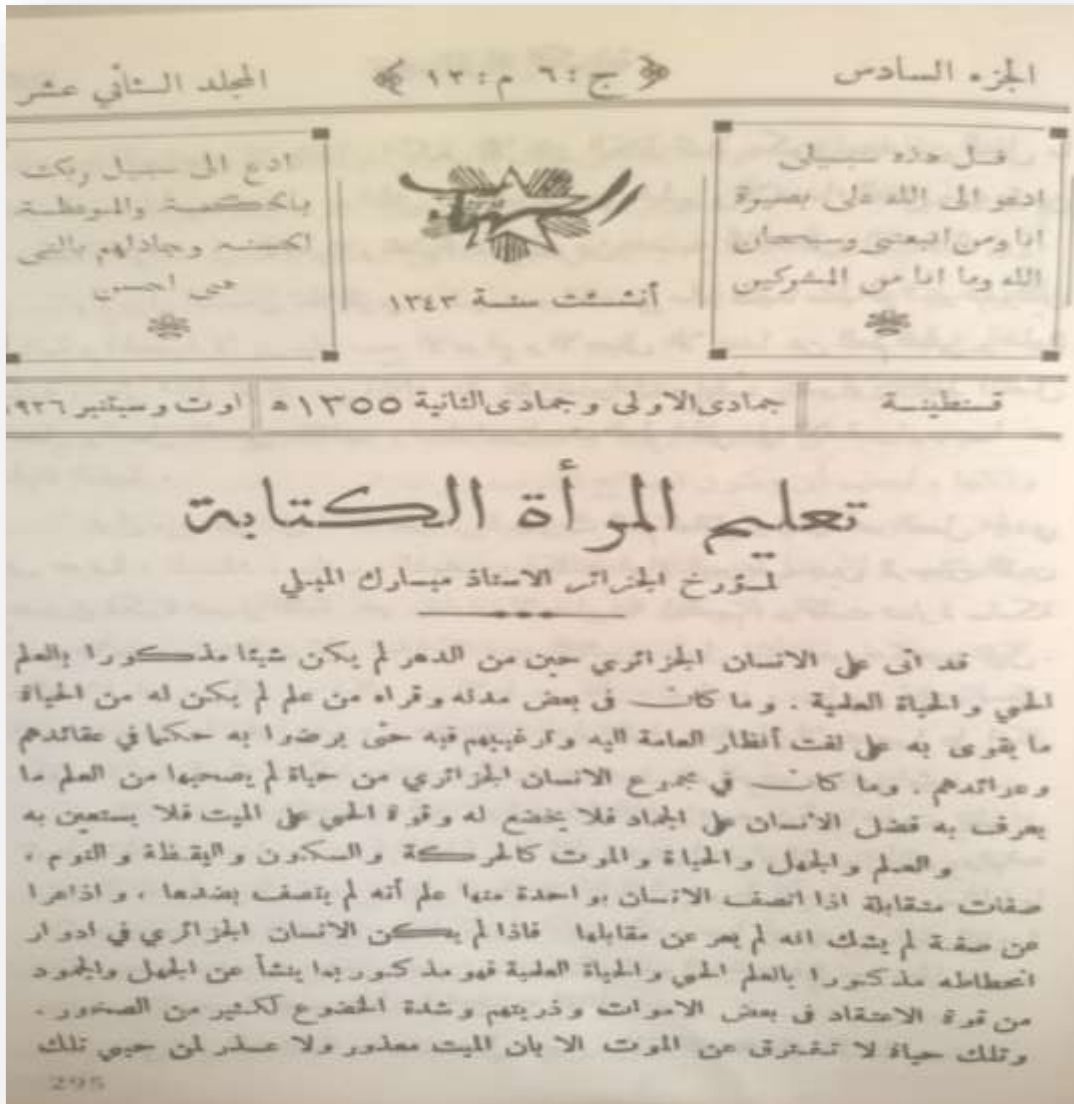 الجزء السادس
﴿ ج : ٦ م : ١٢ ﴾
المجلد الثاني عشر
قل هذه سبيلي
ادعو الى الله على بصيرة
انا ومن اتبعني وسبحان
الله وما انا من المشركين
الشهاب
أنشئت سنة ١٣٤٣
ادع الى سبيل ربك
بالحكمة والموعظة
الحسنة وجادلهم بالتي
هي احسن
قسنطينة
جمادى الاولى و جمادى الثانية ١٣٥٥ ه
اوت و سبتنبر ١٩٣٦
تعليم المرأة الكتابة
لمؤرخ الجزائر الاستاذ مبارك الميلي
قد اتى على الانسان الجزائري حين من الدهر لم يكن شيئا مذكورا بالعلم
الحي و الحياة العلمية . و ما كان في بعض مدنه و قراه من علم لم يكن له من الحياة
ما يقوى به على لفت أنظار العامة اليه و ترغيبهم فيه حتى يرضوا به حكما في عقائدهم
و عوائدهم . وما كان في مجموع الانسان الجزائري من حياة لم يصحبها من العلم ما
يعرف به فضل الانسان على الجماد فلا يخضع له و قوة الحي على الميت فلا يستعين به
و العلم و الجهل و الحياة و الموت كالحركة و السكون و اليقظة و النوم ،
صفات متقابلة اذا اتصف الانسان بواحدة منها علم أنه لم يتصف بضدها ، و اذا عرا
عن صفة لم يشك انه لم يعر عن مقابلها فاذا لم يكن الانسان الجزائري في ادوار
انحطاطه مذكورا بالعلم الحي و الحياة العلمية فهو مذكور بما ينشأ عن الجهل والجمود
من قوة الاعتقاد في بعض الاموات و ذريتهم و شدة الخضوع لكثير من الصخور .
و تلك حياة لا تفترق عن الموت الا بان الميت معذور ولا عذر لمن حيي تلك
295